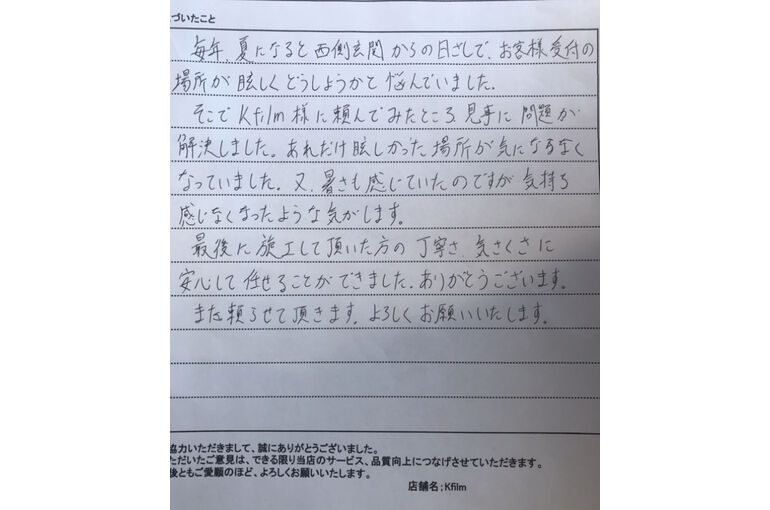 づいたこと
毎年、夏になると西側玄関からの日ざしで、お客様受付の
場所が眩しくどうしようかと悩んでいました。
そこでKfilm様に頼んでみたところ、見事に問題が
解決しました。あれだけ眩しかった場所が気にならなく
なっていました。又、暑さも感じていたのですが気持ち
感じなくなったような気がします。
最後に施工して頂いた方の丁寧さ、気さくさに
安心して任せることができました。ありがとうございます。
また頼らせて頂きます。よろしくお願いいたします。
協力いただきまして、誠にありがとうございました。
ただいたご意見は、できる限り当店のサービス、品質向上につなげさせていただきます。
後ともご愛顧のほど、よろしくお願いいたします。
店舗名;Kfilm